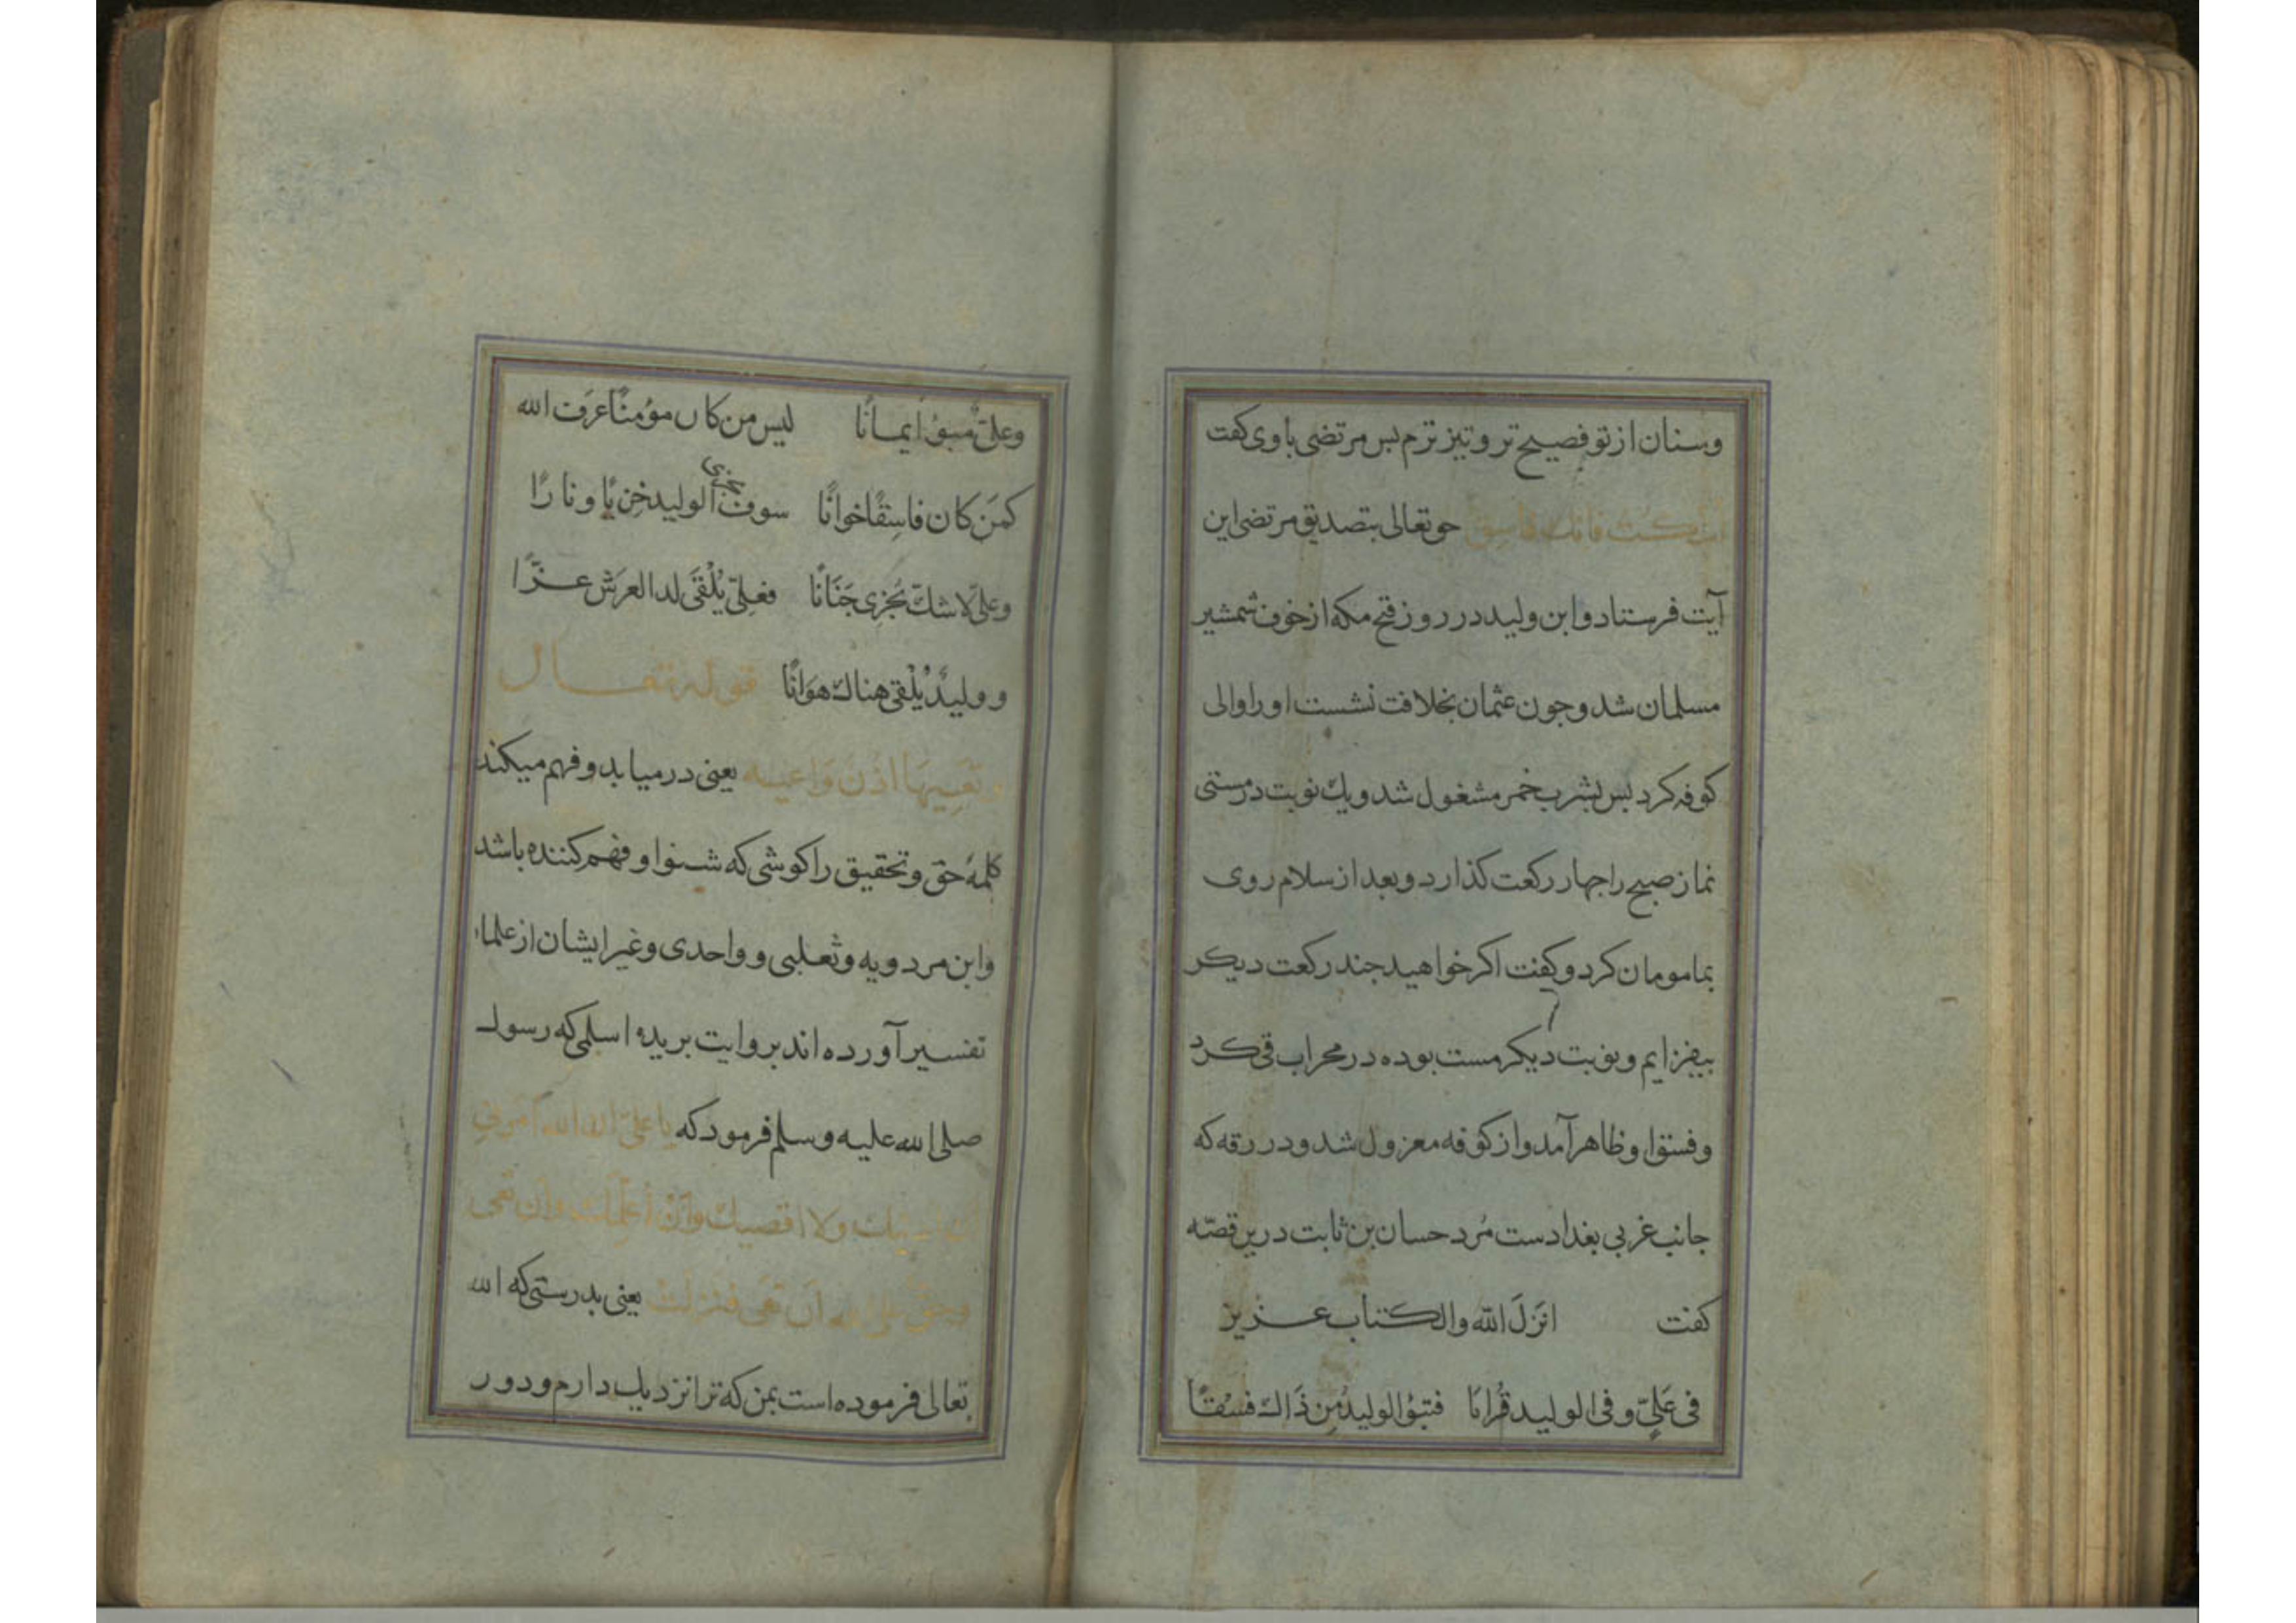 وسنان از تو فصیح تر و تیز ترم بس مرتضی باوی کفت
اسکت فانك فاسق حو تعالی بتصدیق مرتضی این
آیت فرستاد و ابن ولید در روز فتح مکه از خوف شمشیر
مسلمان شد و جون عثمان بخلافت نشست او را والی
کوفه کرد بس بشرب خمر مشغول شد ویك نوبت در مستی
نماز صبح را جهار رکعت کذارد و بعد از سلام روی
بمامومان کرد و کفت اکر خواهید جند رکعت دیکر
بیفزایم و نوبت دیکر مست بوده در محراب قی کرد
و فسق او ظاهر آمد و از کوفه معزول شد و در رقه که
جانب غربی بغدادست مُرد حسان بن ثابت درین قصّه
کفت انَزلَ اللّه والکتاب عزیز
فی عَلیٍّ و فی الولید قُرانَا فتبوُا الولیدُ مِن ذَالك فسْقًا
وعلیٌّ مبوُا ایمانًا لیس من کان مؤمنًا عرَف الله
کمَن کان فاسِقًا خوانًا سوف یجزی الولید خزیًا و نارًا
وعلیّ لاشكّ یُجزی جَنَانًا فعلیّ یُلْقَی لدا العرَش عزًّا
و ولیدٌ یُلْقی هناك هوَانًا قوله تعال
وتَعِیَهَا اذُن وَاعیه یعنی درمیابد و فهم میکند
کلمهٔ حق و تحقیق را کوشی که شنوا و فهم کننده باشد
وابن مردویه و ثعلبی و واحدی و غیر ایشان از علماء
تفسیر آورده اند بروایت بریده اسلمی که رسول
صلی الله علیه وسلم فرمود که یا علیّ ان الله امرنی
ان ادنیك ولا اقصیك وَانْ اُعلّمك وان تعی
وحق علی الله اَن تعَی فنزلت یعنی بدرستی که الله
تعالی فرموده است بمن که ترا نزدیك دارم و دور